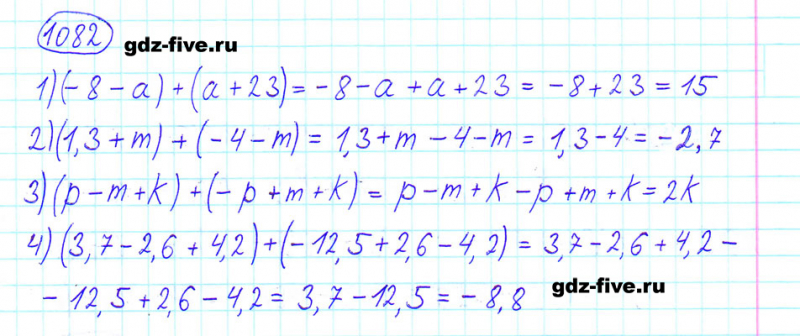 1082 gdz-five.ru
1) (-8-a)+(a+23)=-8-a+a+23=-8+23=15
2) (1,3+m)+(-4-m)=1,3+m-4-m=1,3-4=-2,7
3) (p-m+k)+(-p+m+k)=p-m+k-p+m+k=2k
4) (3,7-2,6+4,2)+(-12,5+2,6-4,2)=3,7-2,6+4,2-
-12,5+2,6-4,2=3,7-12,5=-8,8 gdz-five.ru